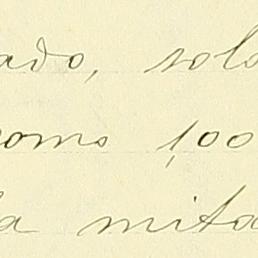 ado, sola
como 1,00
la mita